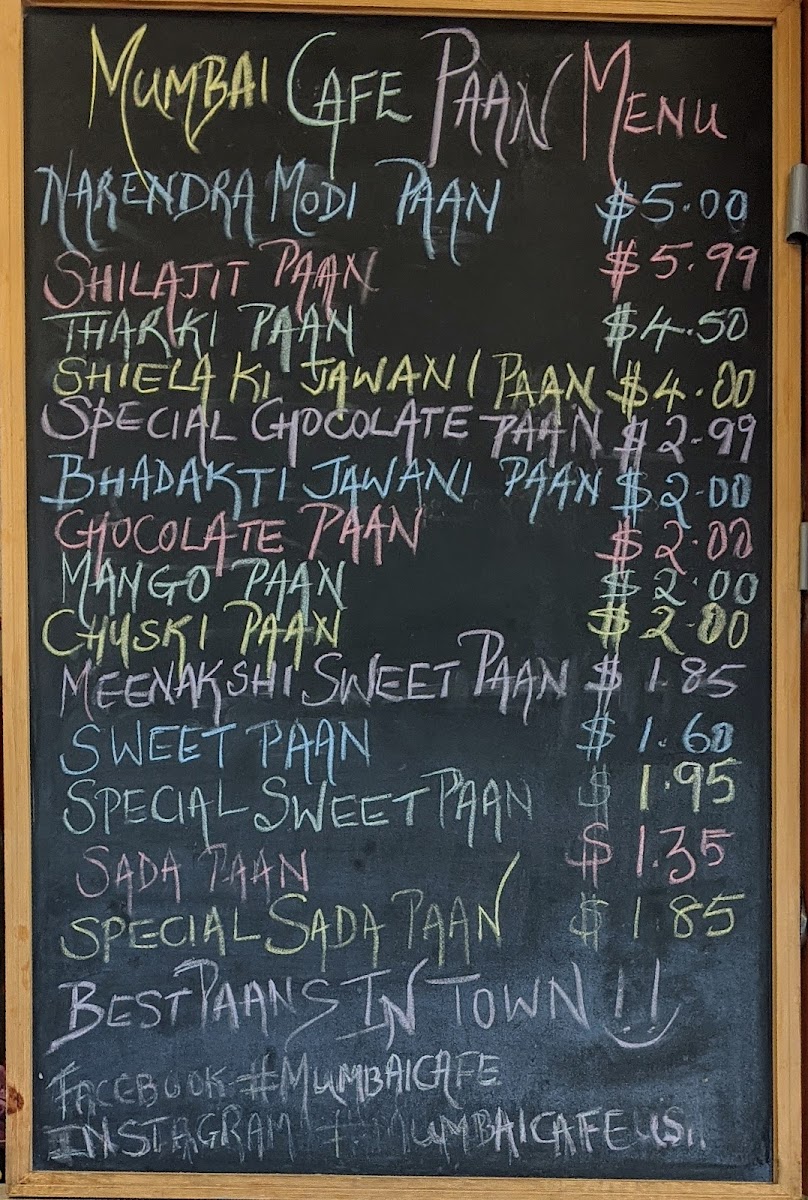 MUMBAI CAFE PAAN MENU
NARENDRA MODI PAAN $5.00
SHILAJIT PAAN $5.99
THARKI PAAN $4.50
SHIELA KI JAWANI PAAN $4.00
SPECIAL CHOCOLATE PAAN $2.99
BHADAKTI JAWANI PAAN $2.00
CHOCOLATE PAAN $2.00
MANGO PAAN $2.00
CHUSKI PAAN $2.00
MEENAKSHI SWEET PAAN $1.85
SWEET PAAN $1.60
SPECIAL SWEET PAAN $1.95
SADA PAAN $1.35
SPECIAL SADA PAAN $1.85
BEST PAANS IN TOWN !!
FACEBOOK #MUMBAICAFE
INSTAGRAM #MUMBAICAFEUS..